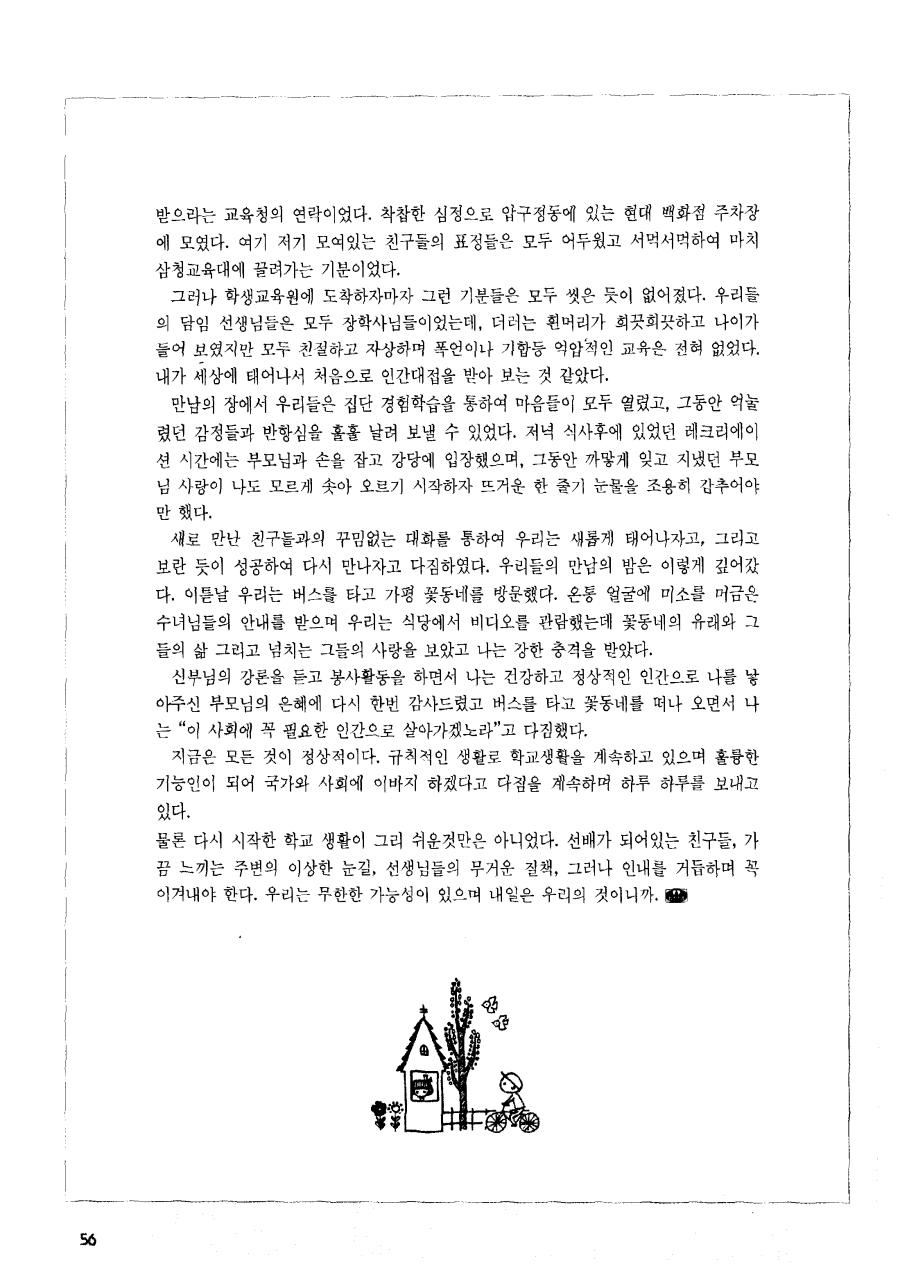 받으라는 교육청의 연락이었다. 착찹한 심정으로 압구정동에 있는 현대 백화점 주차장
에 모였다. 여기 저기 모여있는 친구들의 표정들은 모두 어두웠고 서먹서먹하여 마치
삼청교육대에 끌려가는 기분이었다.
그러나 학생교육원에 도착하자마자 그런 기분들은 모두 씻은 듯이 없어졌다. 우리들
의 담임 선생님들은 모두 장학사님들이었는데, 더러는 흰머리가 희끗희끗하고 나이가
들어 보였지만 모두 친절하고 자상하며 폭언이나 기합등 억압적인 교육은 전혀 없었다.
내가 세상에 태어나서 처음으로 인간대접을 받아 보는 것 같았다.
만남의 장에서 우리들은 집단 경험학습을 통하여 마음들이 모두 열렸고, 그동안 억눌
렸던 감정들과 반항심을 훌훌 날려 보낼 수 있었다. 저녁 식사후에 있었던 레크리에이
션 시간에는 부모님과 손을 잡고 강당에 입장했으며, 그동안 까맣게 잊고 지냈던 부모
님 사랑이 나도 모르게 솟아 오르기 시작하자 뜨거운 한 줄기 눈물을 조용히 감추어야
만 했다.
새로 만난 친구들과의 꾸밈없는 대화를 통하여 우리는 새롭게 태어나자고, 그리고
보란 듯이 성공하여 다시 만나자고 다짐하였다. 우리들의 만남의 밤은 이렇게 깊어갔
다. 이튿날 우리는 버스를 타고 가평 꽃동네를 방문했다. 온통 얼굴에 미소를 머금은
수녀님들의 안내를 받으며 우리는 식당에서 비디오를 관람했는데 꽃동네의 유래와 그
들의 삶 그리고 넘치는 그들의 사랑을 보았고 나는 강한 충격을 받았다.
신부님의 강론을 듣고 봉사활동을 하면서 나는 건강하고 정상적인 인간으로 나를 낳
아주신 부모님의 은혜에 다시 한번 감사드렸고 버스를 타고 꽃동네를 떠나 오면서 나
는 “이 사회에 꼭 필요한 인간으로 살아가겠노라”고 다짐했다.
지금은 모든 것이 정상적이다. 규칙적인 생활로 학교생활을 계속하고 있으며 훌륭한
기능인이 되어 국가와 사회에 이바지 하겠다고 다짐을 계속하며 하루 하루를 보내고
있다.
물론 다시 시작한 학교 생활이 그리 쉬운것만은 아니었다. 선배가 되어있는 친구들, 가
끔 느끼는 주변의 이상한 눈길, 선생님들의 무거운 질책, 그러나 인내를 거듭하며 꼭
이겨내야 한다. 우리는 무한한 가능성이 있으며 내일은 우리의 것이니까.
56